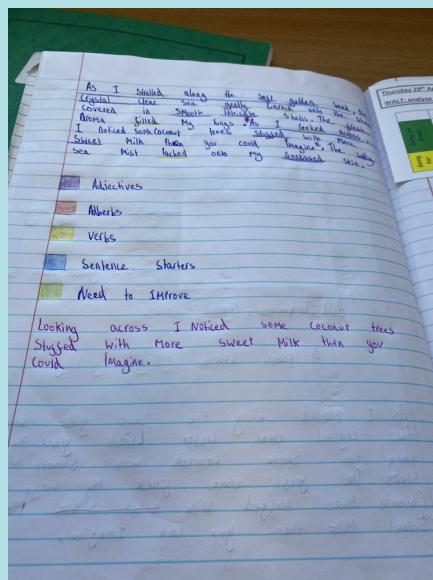 As I strolled along the soft golden sand, the
Crystal clear sea gently onto the shore
covered in smooth intricate shells. The fresh
Aroma filled my lungs. As I looked across,
I noticed some coconut trees stuffed with more
sweet milk then you could imagine. The salty
sea mist latched onto my skin.
Adjectives
Adberbs
Verbs
Sentence Starters
Need to Improve
Looking across I Noticed some coconut trees
Stuffed with More sweet Milk then you
Could Imagine.
Thursday 29th
WALT: analyse